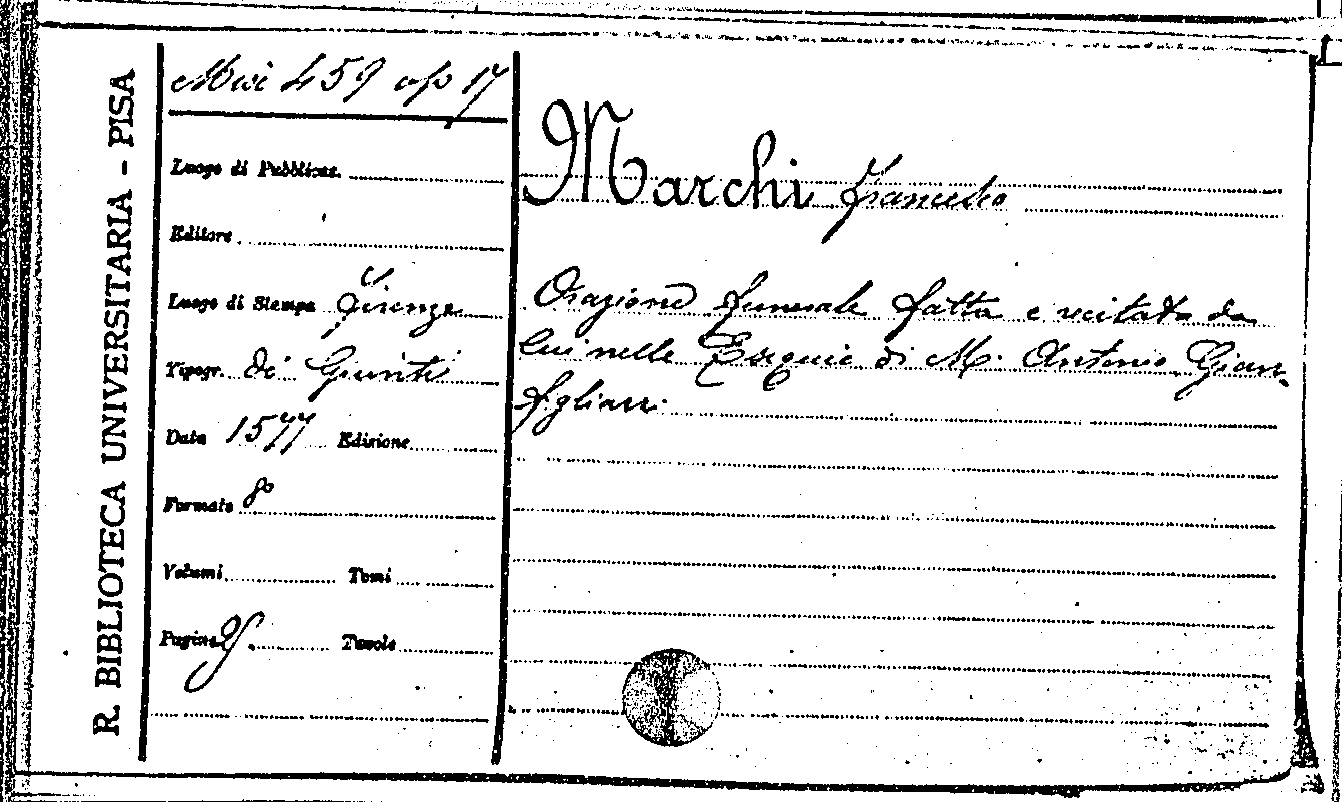 R. BIBLIOTECA UNIVERSITARIA - PISA
Misc 459 op 17
Luogo di Pubblicaz.
Editore
Luogo di Stampa Firenze
Tipogr. di Giunti
Data 1577 Edizione
Formato 8°
Volumi Tomi
Pagine Tavole
Marchi Francesco
Orazione funerale fatta e recitata da
lui nelle Esequie di M. Antonio Gian-
figliazzi.